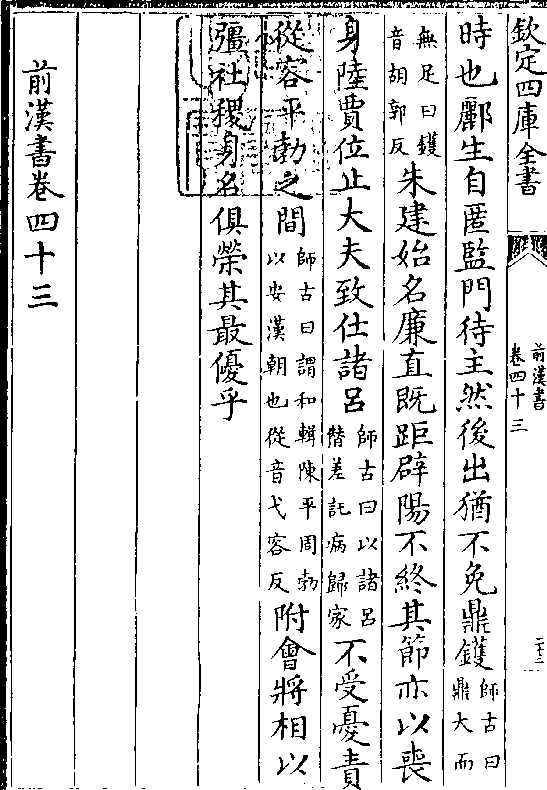 欽定四庫全書
前漢書
卷四十三
二十二
時也酈生自匿監門待主然後出猶不免鼎鑊師古曰鼎大而
無足曰鑊音胡郭反朱建始名廉直既距辟陽不終其節亦以喪
身陸賈位止大夫致仕諸呂師古曰以諸呂僭差託病歸家不受憂責
從容平勃之間師古曰謂和輯陳平周勃以安漢朝也從音弋容反附會將相以
彊社稷身名俱榮其最優乎
前漢書卷四十三